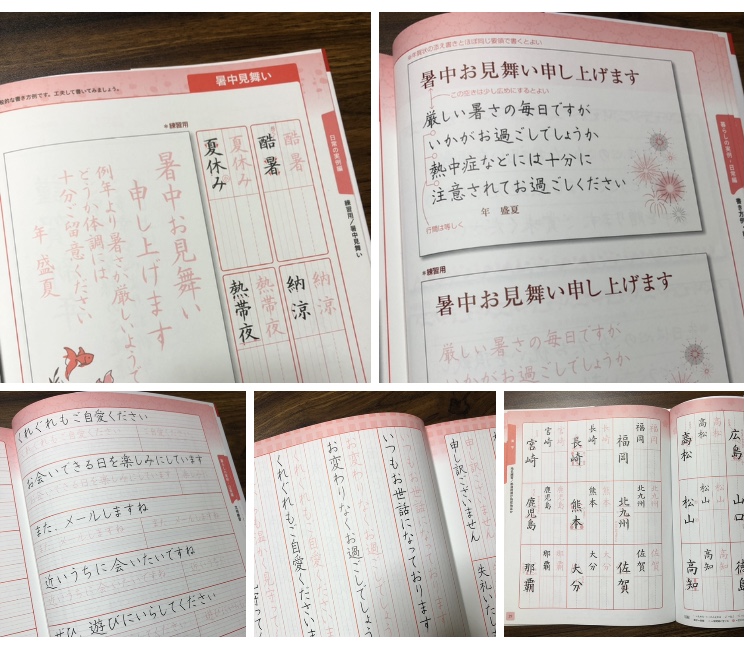 般的な書き方例です。工夫して書いてみましょう。
暑中見舞い
●練習用
日常の実例編
練習用/暑中見舞い
酷暑
酷暑
夏休み
夏休み
納涼
納涼
熱帯夜
熱帯夜
暑中お見舞い
申し上げます
例年より暑さが厳しいようで
どうか体調には
十分ご留意ください
年 盛夏
※年賀状の添え書きとほぼ同じ要領で書くとよい
暑中お見舞い申し上げます
この空きは少し広めにするとよい
厳しい暑さの毎日ですが
いかがお過ごしでしょうか
熱中症などには十分に
注意されてお過ごしください
年 盛夏
行間は等しく
暮らしの実例・日常編
●練習用
暑中お見舞い申し上げます
厳しい暑さの毎日ですが
いかがお過ごしでしょうか
くれぐれもご自愛ください
お会いできる日を楽しみにしています
また、メールしますね
近いうちに会いたいですね
ぜひ、遊びにいらしてください
申し訳ございません
失礼いたし
いつもお世話になっております
お変わりなくお過ごしでしょう
お変わりなくお過
くれぐれもご自愛くださいま
くれぐれもご自愛
広島
高松
高松
高松
福岡
福岡
福岡
長崎
長崎
長崎
宮崎
宮崎
宮崎
山口
松山
松山
松山
北九州
北九州
北九州
熊本
熊本
熊本
鹿児島
鹿児島
鹿児島
徳島
高知
高知
高知
佐賀
佐賀
佐賀
大分
大分
大分
那覇
那覇
那覇